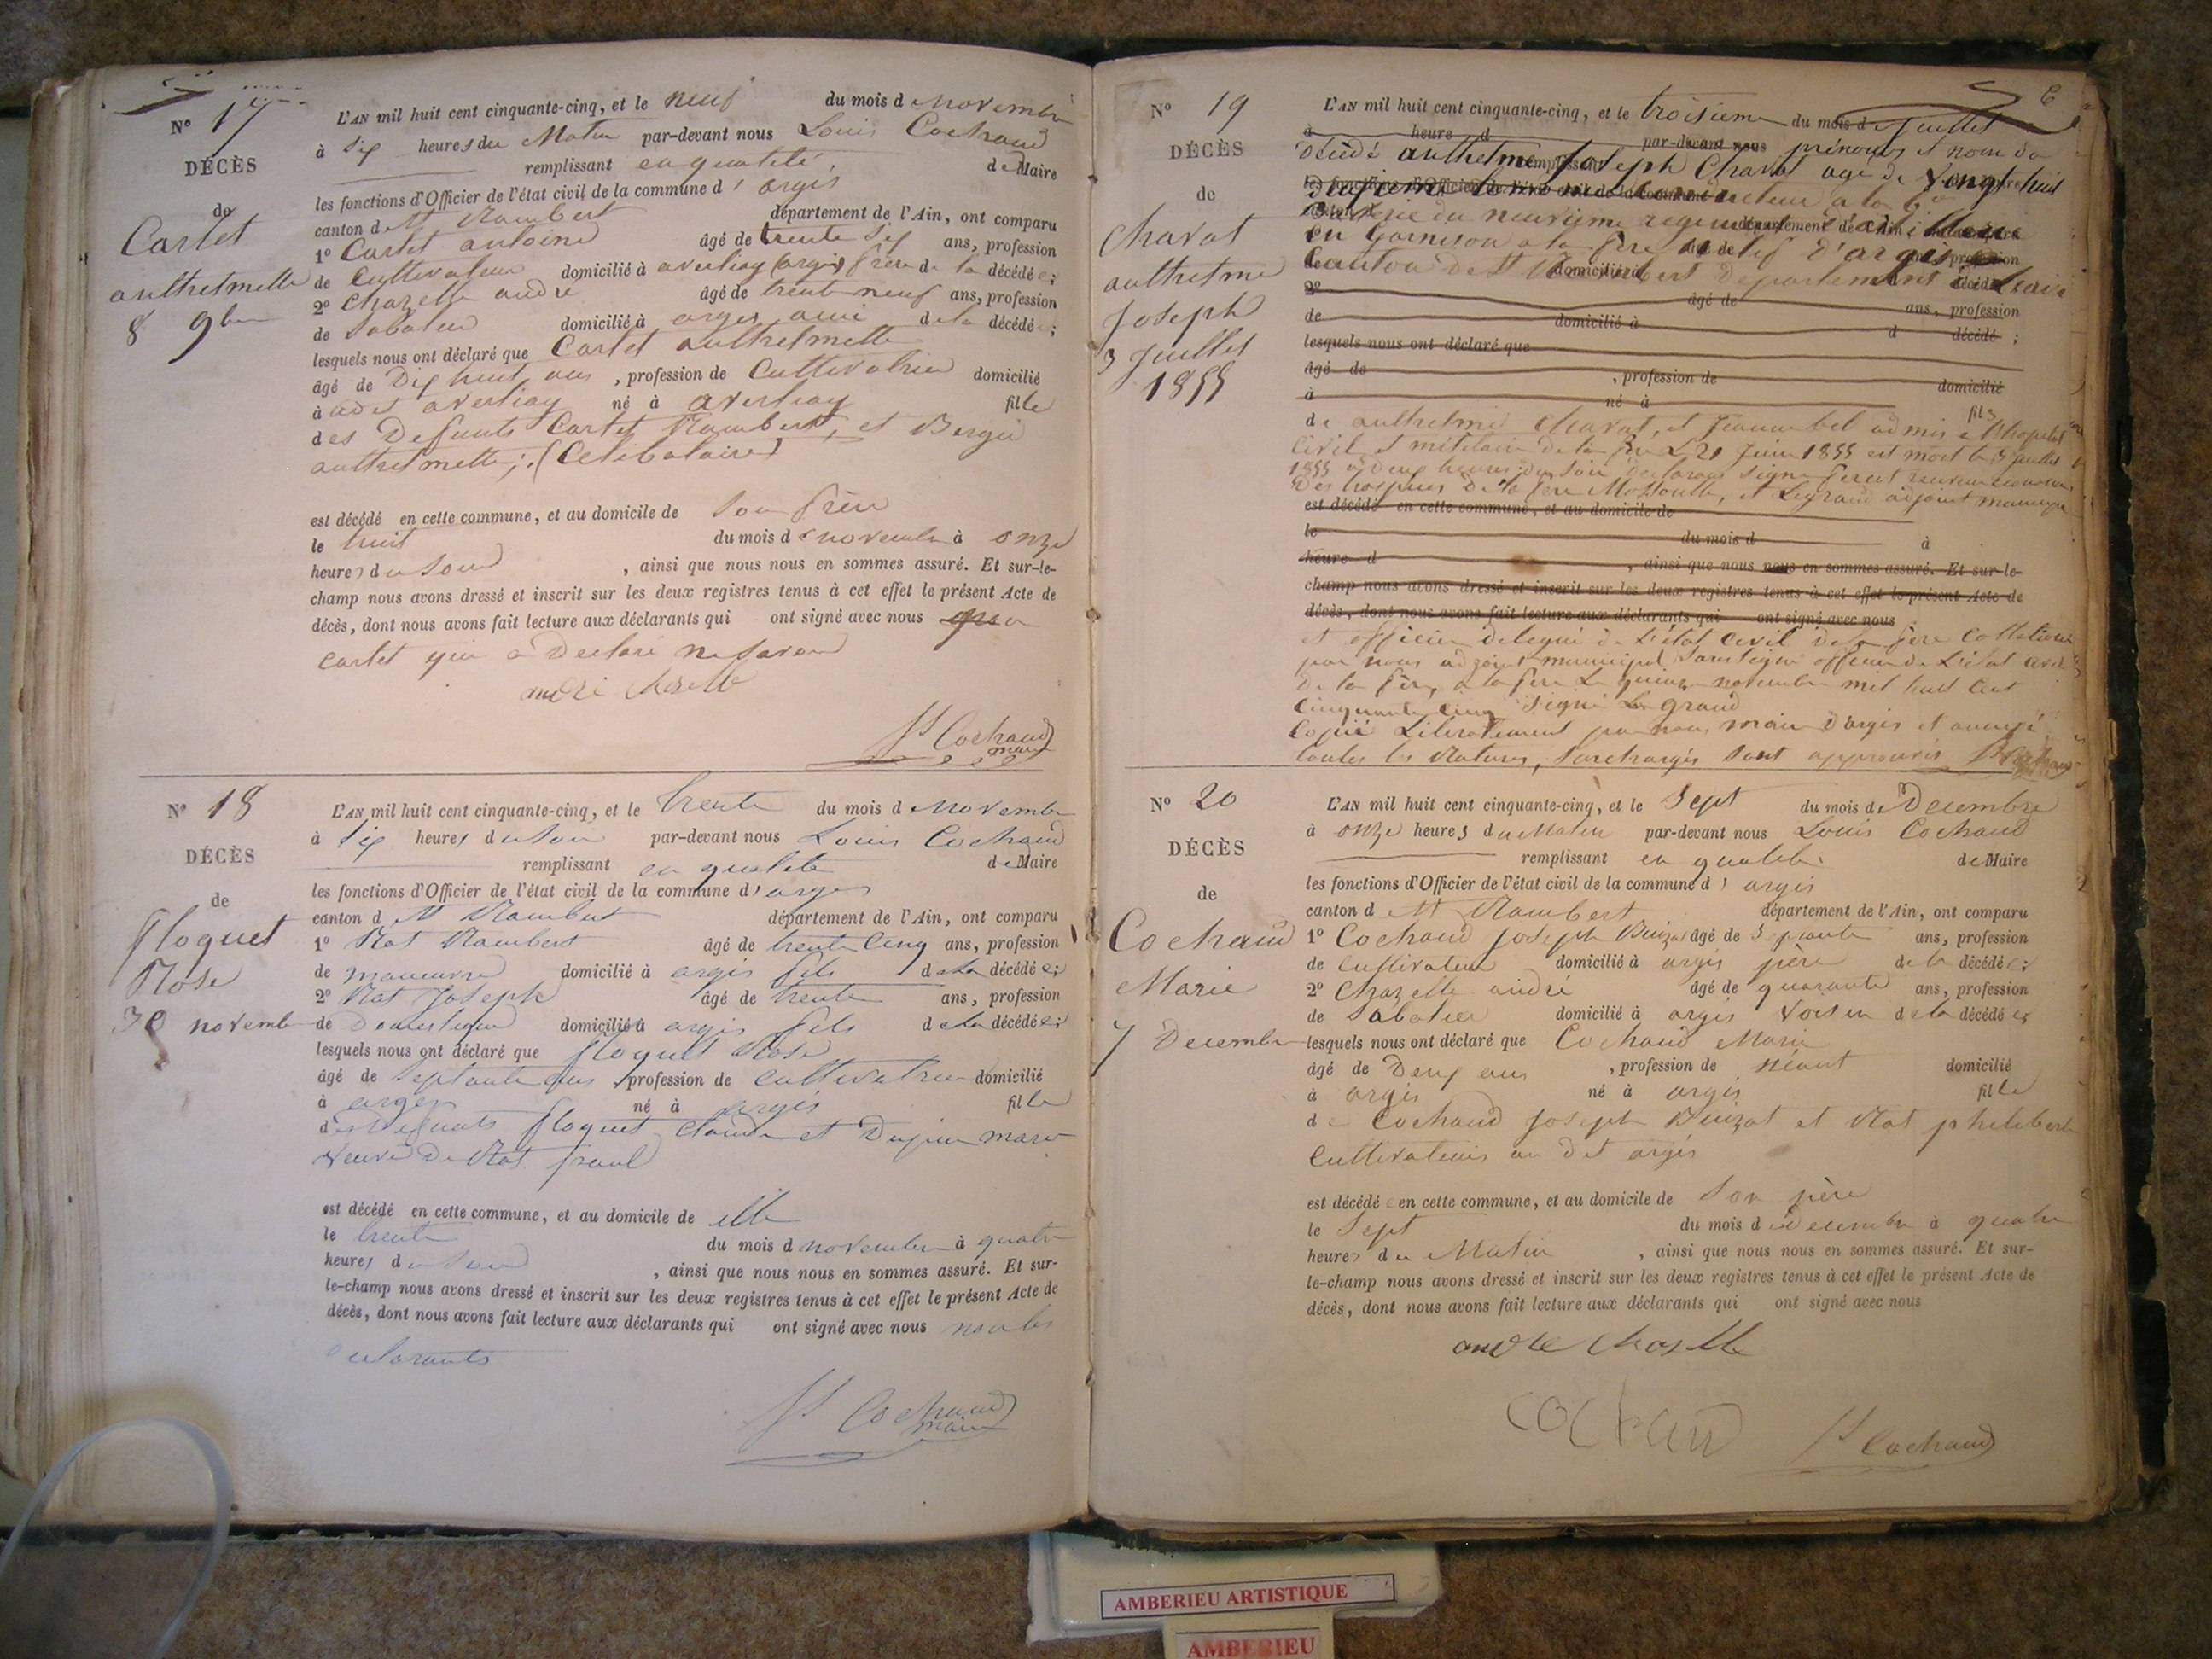 N° 17
DÉCÈS
de
Cartet
anthelmette
8 9bre
L'AN mil huit cent cinquante-cinq, et le neuf du mois de Novembre
à Six heures du Matin par-devant nous Louis Cochaud
remplissant en qualité de Maire
les fonctions d'Officier de l'état civil de la commune d'argis
canton de St Rambert département de l'Ain, ont comparu
1° Cartet antoine âgé de trente Six ans, profession
de Cultivateur domicilié à averliaz (argis) frère de la décédée;
2° Chazelle andré âgé de trente neuf ans, profession
de Sabotier domicilié à argis ami de la décédée;
lesquels nous ont déclaré que Cartet anthelmette
âgé de Dix huit ans, profession de Cultivatrice domicilié
à averliaz né à averliaz fille
des Defunts Cartet Rambert, et
anthelmette; (Celibataire)
est décédé en cette commune, et au domicile de Son frère
le huit du mois de novembre à onze
heures du Soir, ainsi que nous nous en sommes assuré. Et sur-le-
champ nous avons dressé et inscrit sur les deux registres tenus à cet effet le présent Acte de
décès, dont nous avons fait lecture aux déclarants qui ont signé avec nous
Cartet qui a Declaré ne Savoir
L Cochaud
maire
N° 18
DÉCÈS
de
floquet
Rose
30 novembre
L'AN mil huit cent cinquante-cinq, et le trente du mois de Novembre
à Six heures du Soir par-devant nous Louis Cochaud
remplissant en qualité de Maire
les fonctions d'Officier de l'état civil de la commune d'argis
canton de St Rambert département de l'Ain, ont comparu
1° Rat Rambert âgé de trente Cinq ans, profession
de manœuvre domicilié à argis fils de la décédée;
2° Rat Joseph âgé de trente ans, profession
de Domestique domicilié à argis fils de la décédée;
lesquels nous ont déclaré que floquet Rose
âgé de Septante ans, profession de cultivatrice domicilié
à argis né à argis fille
des Defunts floquet Claude et
veuve De Rat
est décédé en cette commune, et au domicile de elle
le trente du mois d novembre à quatre
heures du Soir, ainsi que nous nous en sommes assuré. Et sur-
le-champ nous avons dressé et inscrit sur les deux registres tenus à cet effet le présent Acte de
décès, dont nous avons fait lecture aux déclarants qui ont signé avec nous non les
declarants
L Cochaud
maire
N° 19
DÉCÈS
de
Charat
anthelme
Joseph
3 Juillet
1855
L'AN mil huit cent cinquante-cinq, et le troisième du mois de Juillet
à heure d par-devant nous prénoms et nom du
décédé anthelme Joseph Charat agé de Vingt huit
conducteur a la 6e
Batterie du neuvième regiment d'artillerie
en Garnison a la fère natif d'argis
Canton de St Rambert Departement de l'ain
2° âgé de ans, profession
de domicilié à d décédé ;
lesquels nous ont déclaré que
âgé de , profession de domicilié
à né à fils
de anthelme Charat, et Jeanne bel admis a l'hopital
Civil et militaire de la fère Le 21 Juin 1855 est mort le 3 Juillet
1855 a Deux heures du Soir
Des hospices De la fère et Legrand adjoint
est décédé en cette commune, et au domicile de
le du mois d à
heure d , ainsi que nous nous en sommes assuré. Et sur-le-
champ nous avons dressé et inscrit sur les deux registres tenus à cet effet le présent Acte de
décès, dont nous avons fait lecture aux déclarants qui ont signé avec nous
et officier delegué de L'état Civil de la fère Collationné
par nous adjoint municipal Soussigné officier de L'état Civil
de la fère, a la fère Le quinze novembre mil huit Cent
Cinquante cinq Signé Le grand
Copié Literalement par nous maire d'argis et annexé
toutes les Ratures, Surchargés Sont approuvés
N° 20
DÉCÈS
de
Cochaud
Marie
7 Decembre
L'AN mil huit cent cinquante-cinq, et le Sept du mois de Decembre
à onze heures du Matin par-devant nous Louis Cochaud
remplissant en qualité de Maire
les fonctions d'Officier de l'état civil de la commune d'argis
canton de St Rambert département de l'Ain, ont comparu
1° Cochaud Joseph Buizat âgé de ans, profession
de Cultivateur domicilié à argis père de la décédée;
2° Chazelle andré âgé de quarante ans, profession
de Sabotier domicilié à argis Voisin de la décédée;
lesquels nous ont déclaré que Cochaud Marie
âgé de Deux ans, profession de néant domicilié
à argis né à argis fille
de Cochaud Joseph Buizat et Rat philiberte
Cultivateurs au dit argis
est décédée en cette commune, et au domicile de Son père
le Sept du mois de Decembre à quatre
heures du Matin, ainsi que nous nous en sommes assuré. Et sur-
le-champ nous avons dressé et inscrit sur les deux registres tenus à cet effet le présent Acte de
décès, dont nous avons fait lecture aux déclarants qui ont signé avec nous
andre
L Cochaud
AMBERIEU ARTISTIQUE
AMBERIEU